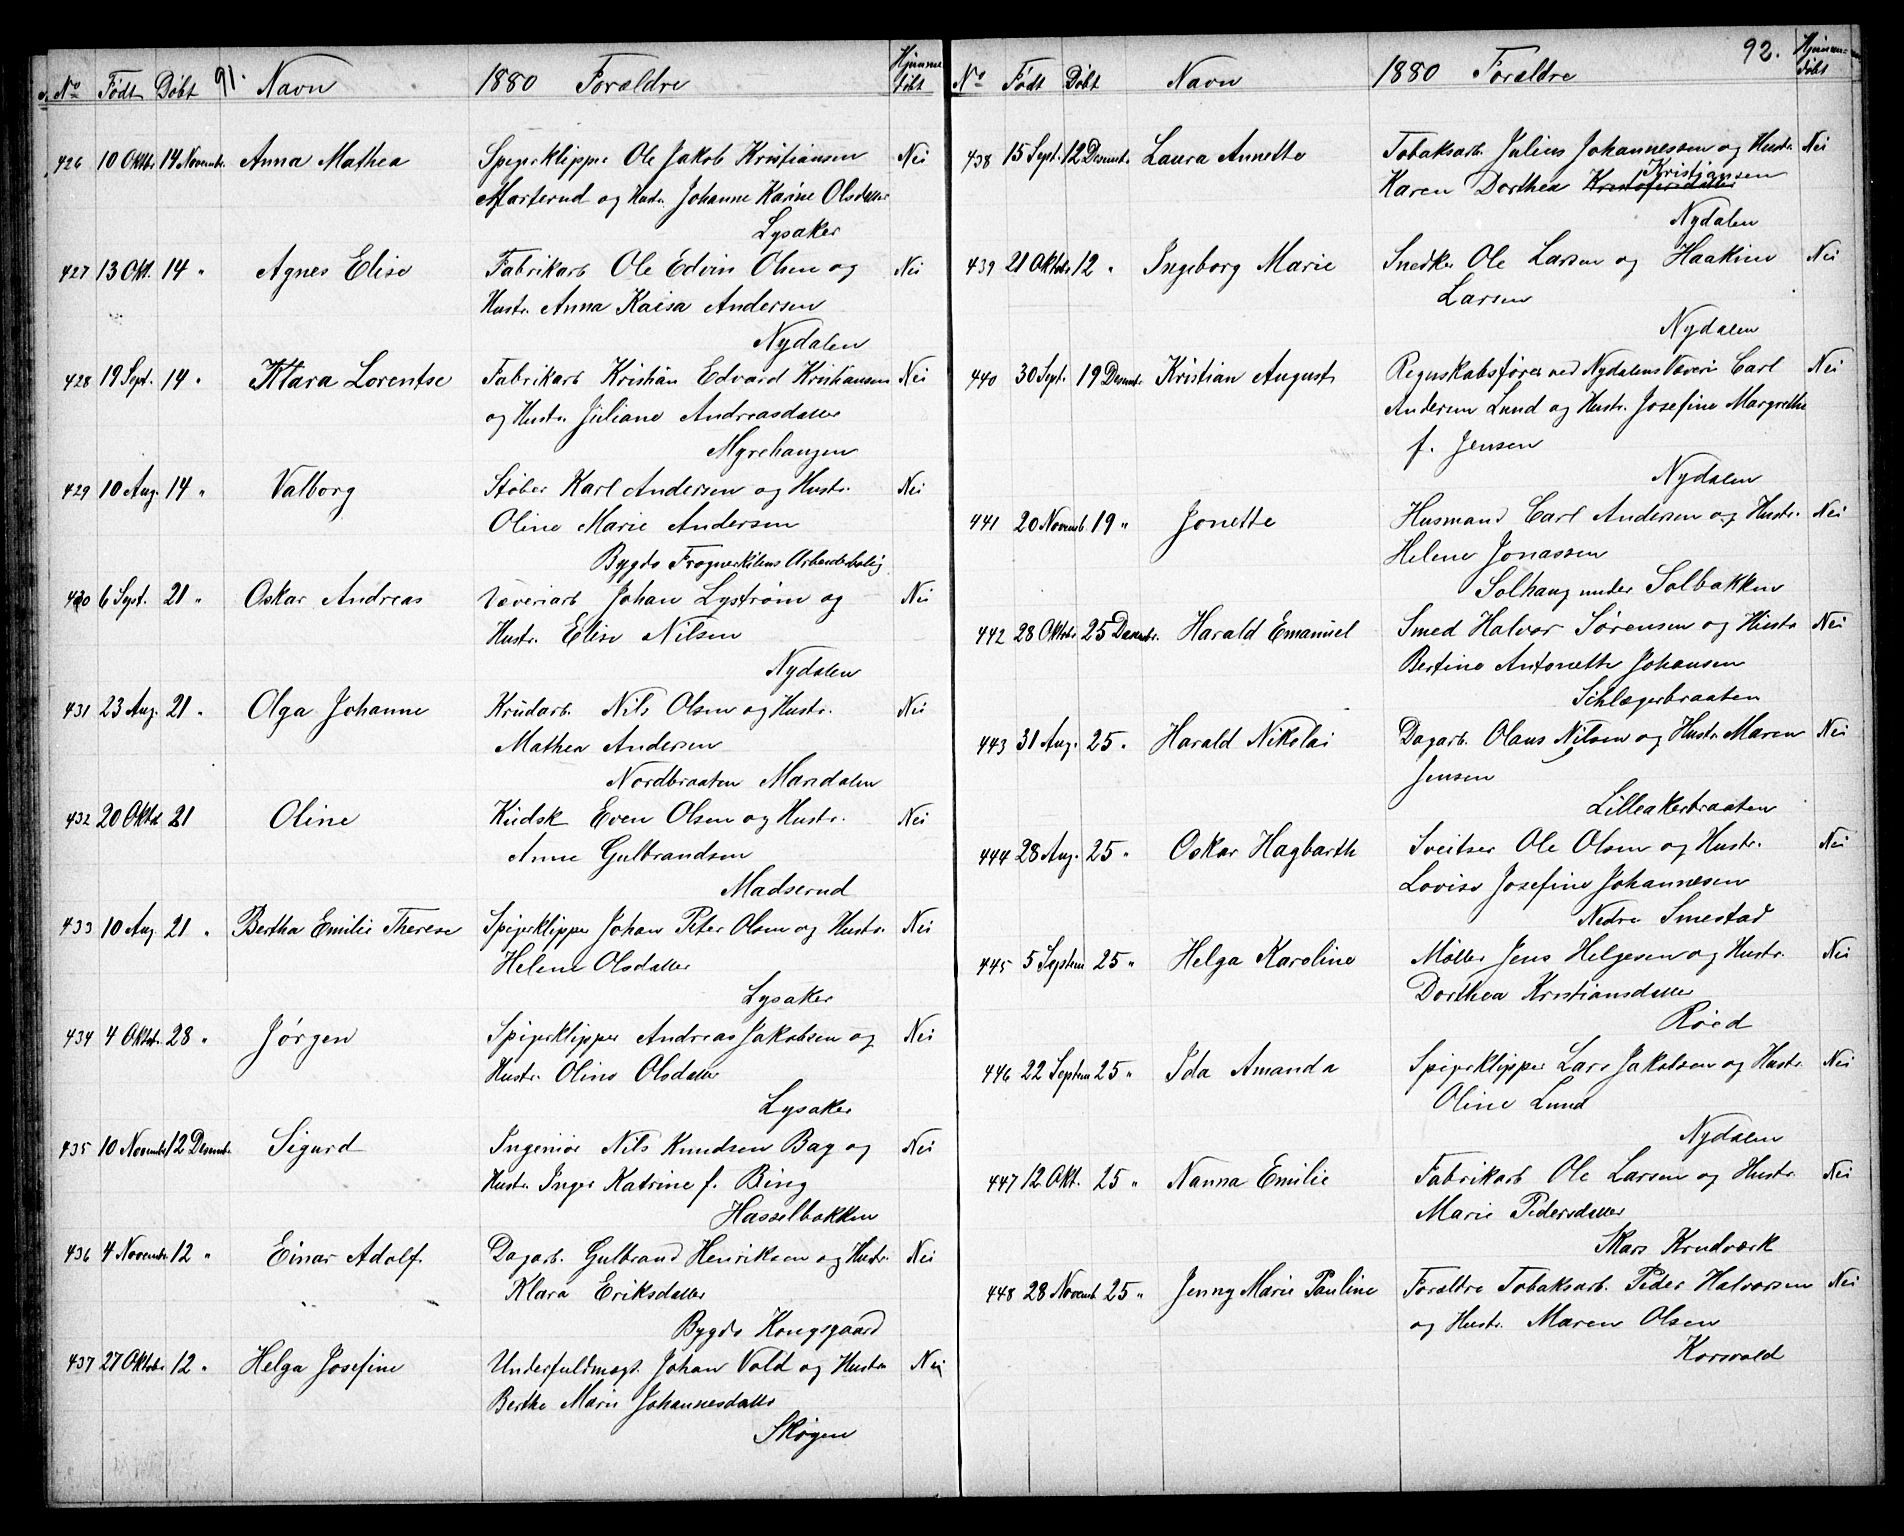 No Født Døbt 91. Navn 1880 Forældre Hjemme døbt
426 10 Oktbr. 14 Novembr. Anna Mathea Spigerklipper Ole Jakob Kristiansen Nei
Marterud og Hustr. Johanne Karine Olsdatter
Lysaker
427 13 Okt. 14 " Agnes Elise Fabrikarb Ole Edvin Olsen og Nei
Hustr. Anna Kaisa Andersen
Nydalen
428 19 Sept. 14 " Klara Lorentse Fabrikarb Kristian Edvard Kristiansen Nei
og Hustr. Juliane Andreasdatter
Myrehaugen
429 10 Aug. 14 " Valborg Støber Karl Andersen og Hustr. Nei
Oline Marie Andersen
Bygdø Frognerkilens Arbeiderbolig
430 6 Sept. 21 " Oskar Andreas Væveriarb Johan Lystrøm og Nei
Hustr. Elise Nilsen
Nydalen
431 23 Aug. 21 " Olga Johanne Krudarb. Nils Olsen og Hustr. Nei
Mathea Andersen
Nordbraaten Maridalen
432 20 Oktbr 21 Oline Kudsk Even Olsen og Hustr. Nei
Anne Gulbrandsen
Madserud
433 10 Aug 21 " Bertha Emilie Therese Spigerklipper Johan Peter Olsen og Hustr. Nei
Helene Olsdatter
Lysaker
434 4 Oktbr. 28 " Jørgen Spigerklipper Andreas Jakobsen og Nei
Hustr. Oline Olsdatter
Lysaker
435 10 Novembr 12 Desembr. Sigurd Ingeniør Nils Knudsen Bay og Nei
Hustr. Inger Katrine f. Bing
Hasselbakken
436 4 Novembr 12 " Einar Adolf. Dagarb. Gulbrand Henriksen og Hustr. Nei
Klara Eriksdatter
Bygdø Kongsgaard
437 27 Oktobr. 12 " Helga Josefine Underfuldmægt. Johan Vold og Hustru Nei
Berthe Marie Johannesdatter
Skøyen
No Født Døbt Navn 1880 Forældre 92. Hjemmedøbt
438 15 Sept. 12 Desembr. Laura Annette Tobaksarb. Julius Johannessen og Hustr. Nei
Karen Dorthea Kristofersdatter Kristiansen
Nydalen
439 21 Oktobr 12 " Ingeborg Marie Snedker Ole Larsen og Haakine Nei
Larsen
Nydalen
440 30 Sept. 19 Desembr. Kristian August Regnskabsfører ved Nydalens Væveri Carl Nei
Andersen Lund og Hustr. Josefine Margrethe
f. Jensen
Nydalen
441 20 Novemb 19 " Jonette Husmand Carl Andersen og Hustr. Nei
Helene Jonassen
Solhaug under Solbakken
442 28 Oktobr 25 Desembr. Harald Emanuel Smed Halvor Sørensen og Hustr Nei
Bertine Antonette Johansen
Schlægerbraaten
443 31 Aug. 25 " Harald Nikolai Dagarb. Olaus Nilsen og Hustr. Maren Nei
Jensen
Lilleakerbraaten
444 28 Aug. 25 " Oskar Hagbarth Sveitser Ole Olsen og Hustr. Nei
Lovise Josefine Johannesen
Nedre Smestad
445 5 Septem 25 " Helga Karoline Møller Jens Helgesen og Hustr. Nei
Dorthea Kristiansdatter
Røed
446 22 Septem 25 " Ida Amanda Spigerklipper Lars Jakobsen og Hustr. Nei
Oline Lund
Nydalen
447 12 Okt. 25 " Nanna Emilie Fabrikarb Ole Larsen og Hustr. Nei
Marie Pedersdatter
Skars Krudværk
448 28 Novemb 25 " Jenny Marie Pauline Forældre Tobaksarb. Peder Halvorsen Nei
og Hustr. Maren Olsen
Korsvold